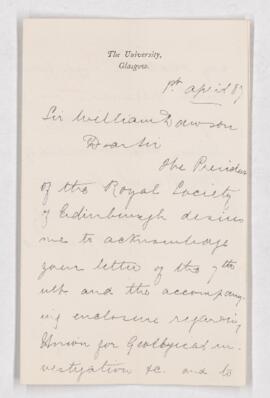 The University,
Glasgow.
1st April 87
Sir William Dawson
Dear Sir
The President
of the Royal Society
of Edinburgh desires
me to acknowledge
your letter of the 7th
ult and the accompany-
ing enclosure regarding
Union for Geological in-
vestigation &c. and to